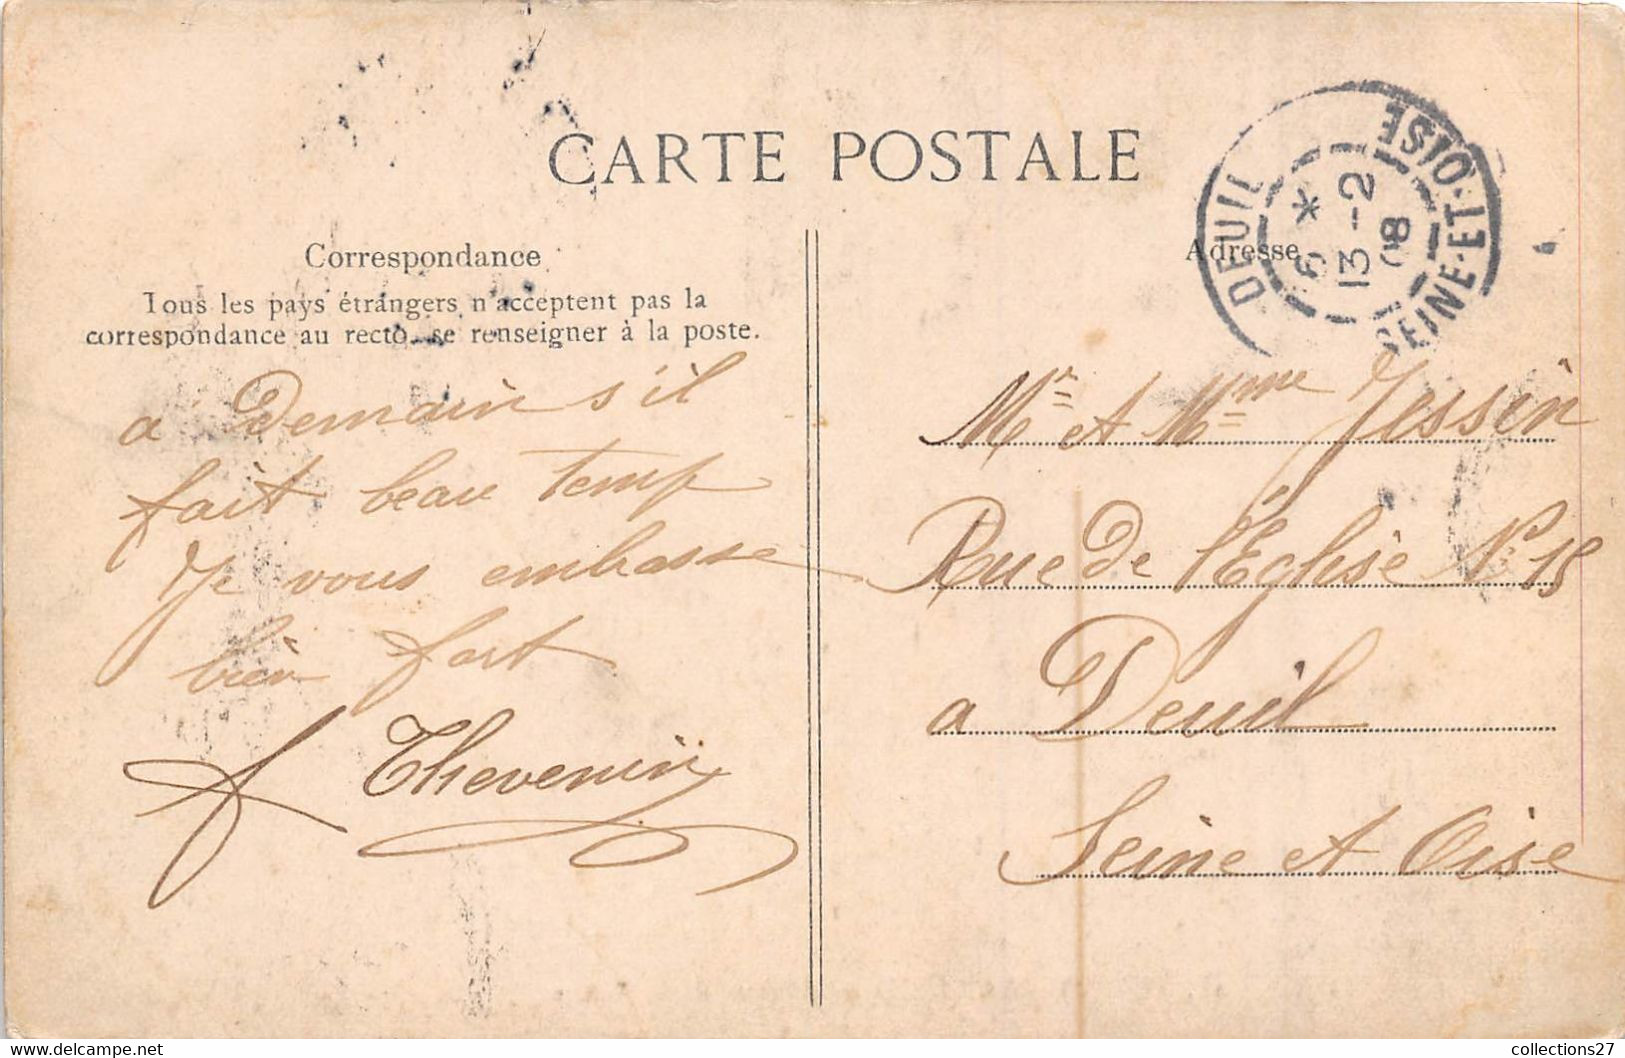 CARTE POSTALE
Correspondance
Tous les pays étrangers n'acceptent pas la
correspondance au recto, se renseigner à la poste.
a Demain s'il
fait beau temp
Je vous embrasse
bien fort
Thevenin
Adresse
DEUIL
SEINE-ET-OISE
6 *
13-2
08
Mr et Mme Jessin
Rue de l'Église N° 15
a Deuil
Seine et Oise
collections27